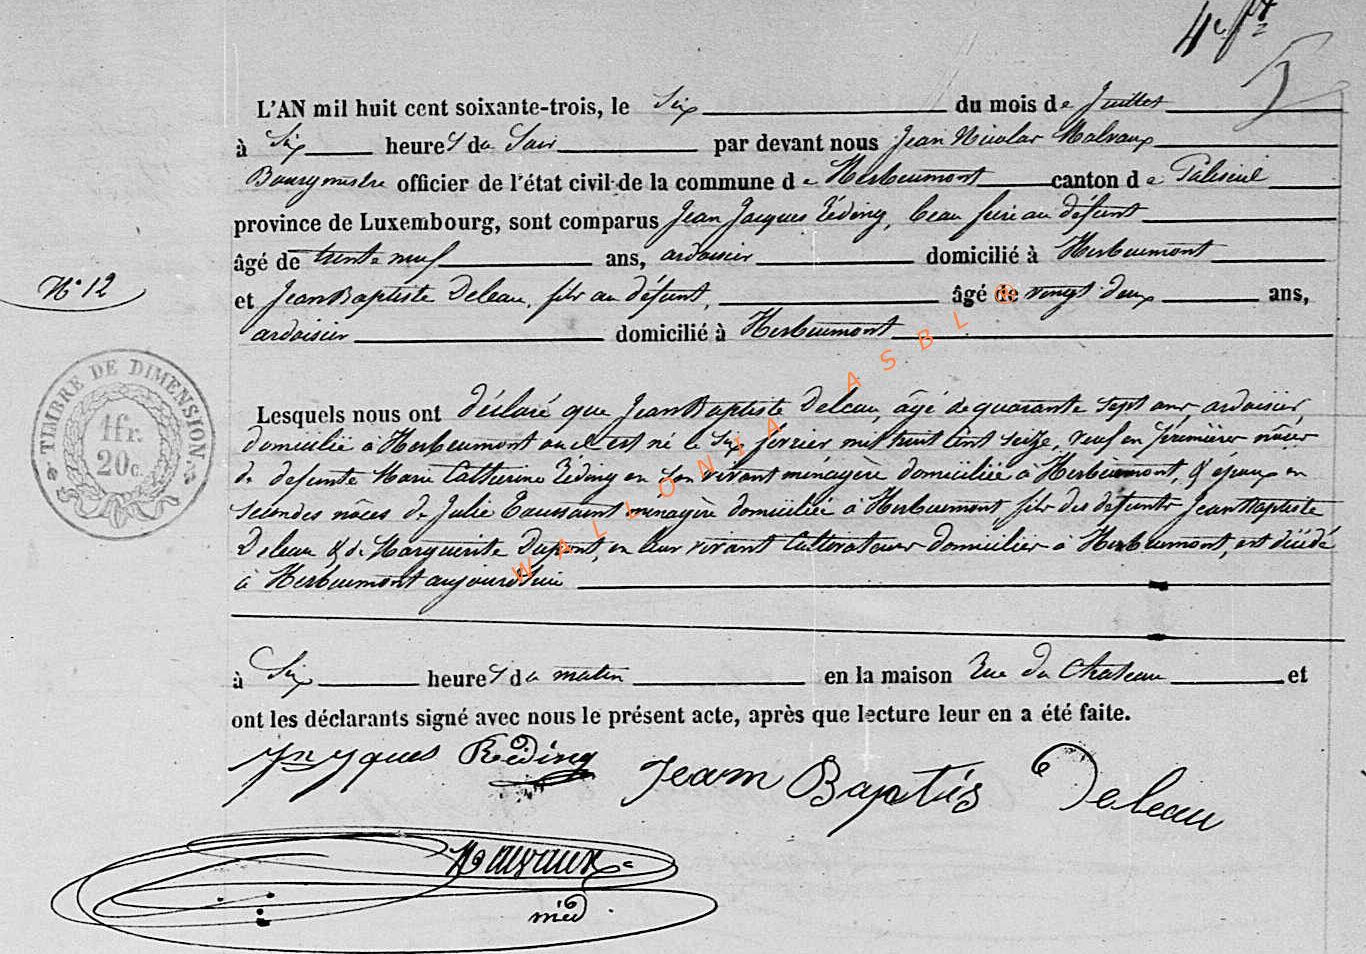 L'AN mil huit cent soixante-trois, le Six du mois de Juillet
à Six heures du Soir par devant nous Jean Nicolas Malvaux
Bourgmestre officier de l'état civil de la commune de Herbeumont canton de Paliseul
province de Luxembourg, sont comparus Jean Jacques Réding, beau frère au défunt
âgé de trente neuf ans, ardoisier domicilié à Herbeumont
N° 12
et Jean Baptiste Deleau, fils au défunt, âgé de vingt deux ans,
ardoisier domicilié à Herbeumont
TIMBRE DE DIMENSION
1fr.
20c.
Lesquels nous ont déclaré que Jean Baptiste Deleau, âgé de quarante sept ans ardoisier,
domicilié à Herbeumont où il est né le Six février mil huit cent seize, veuf en premières nôces
de défunte Marie Catherine Réding en son vivant ménagère domiciliée à Herbeumont, & époux en
secondes nôces de Julie Toussaint ménagère domiciliée à Herbeumont, fils des défunts Jean Baptiste
Deleau & de Marguerite Dupont, en leur vivant cultivateurs domiciliés à Herbeumont, est décédé
à Herbeumont aujourd'hui
à Six heures du matin en la maison Rue du Chateau et
ont les déclarants signé avec nous le présent acte, après que lecture leur en a été faite.
Jn Jques Réding Jeam Baptis Deleau
Malvaux
WALLONIA ASBL ®